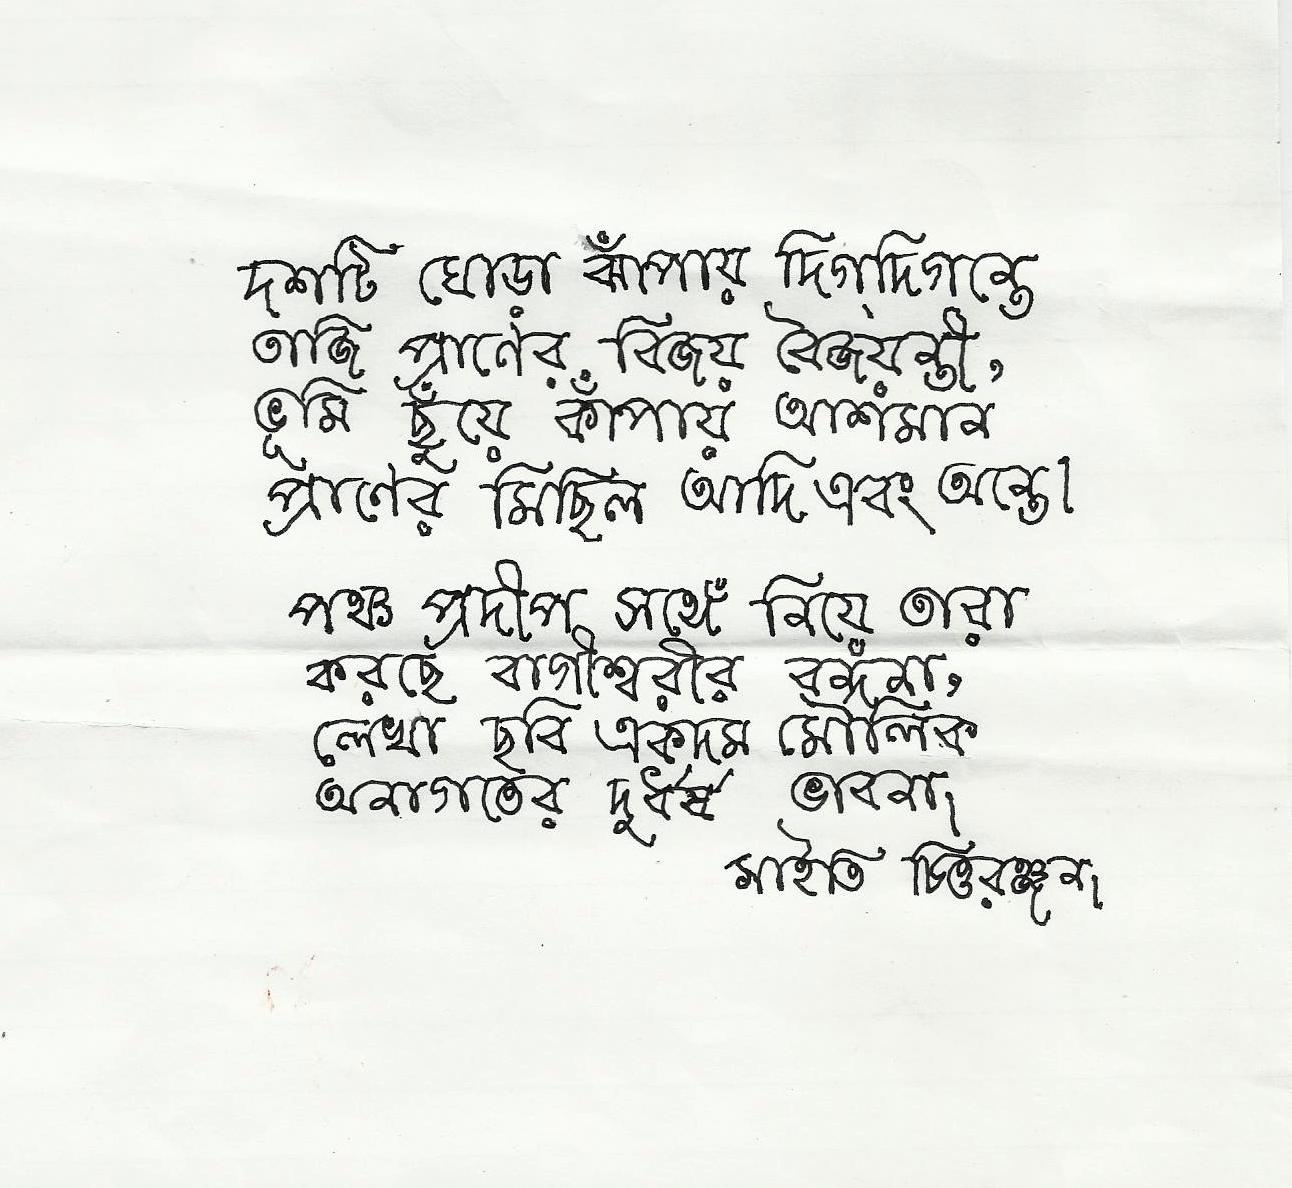 দশটি ঘোড়া ঝাঁপায় দিগ্দিগন্তে
তাজি প্রাণের বিজয় বৈজয়ন্তী,
ভূমি ছুঁয়ে কাঁপায় আশমান
প্রাণের মিছিল আদি এবং অন্তে।
পঞ্চ প্রদীপ সঙ্গে নিয়ে তারা
করছে বাগীশ্বরীর বন্দনা,
লেখা ছবি একদম মৌলিক
অনাগতের দুর্ধর্ষ ভাবনা।
মাইতি চিত্তরঞ্জন।